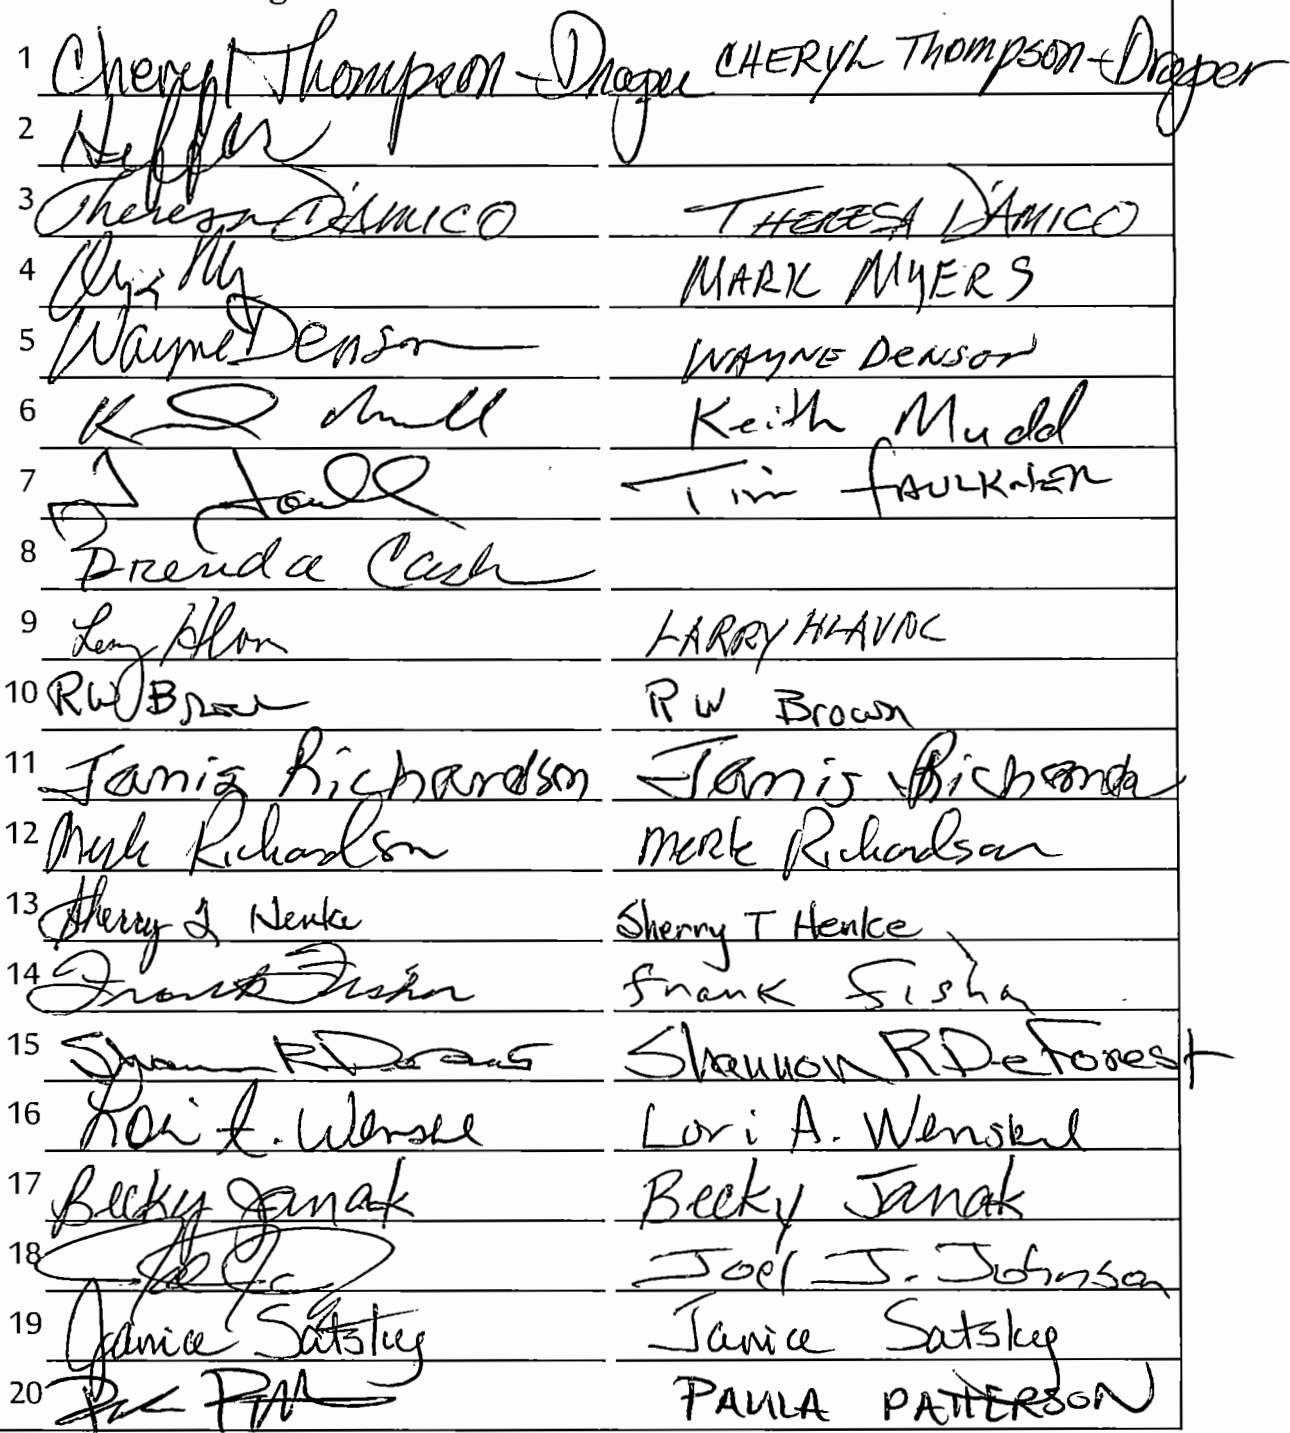 1 Cheryl Thompson-Draper CHERYL Thompson-Draper
2
3 Theresa D'AMICO THERESA D'AMICO
4 MARK MYERS
5 Wayne Denson WAYNE DENSON
6 Keith Mudd
7 Tim FAULKNER
8 Brenda Cash
9 LARRY HLAVAC
10 RW Brown RW Brown
11 Janis Richardson Janis
12 Merle Richardson Merle Richardson
13 Sherry T Henke Sherry T Henke
14 Frank Fisher Frank Fisher
15 Shannon R DeForest
16 Lori A. Wenske Lori A. Wenskel
17 Becky Janak Becky Janak
18 Joel J. Johnson
19 Janice Satsky Janice Satsky
20 PAULA PATTERSON